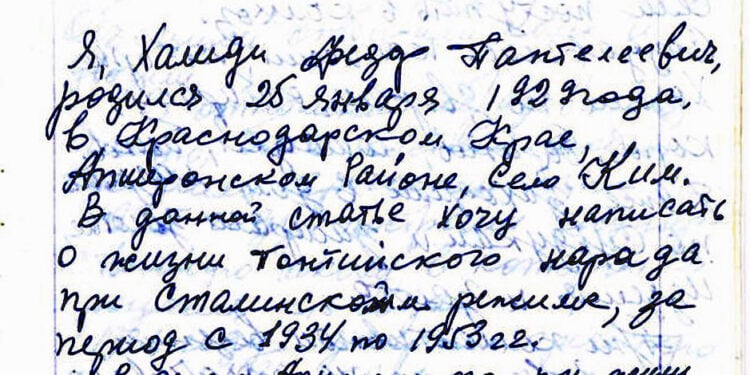 Я, Халиди Федор Пантелеевич,
родился 25 января 1929 года.
в, Краснодарском Крае,
Апшеронском Районе, село Ким.
В данной статье хочу написать
о жизни Понтийского нарада
при Сталинском режиме, за
период с 1934 по 1953 гг.